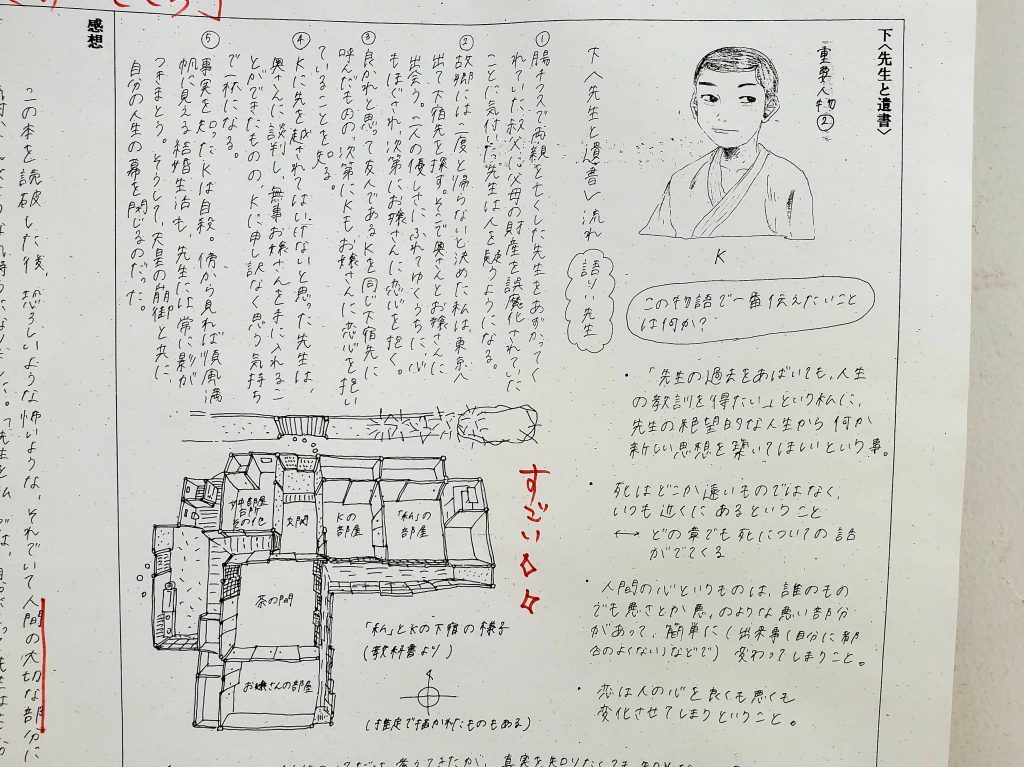 下〈先生と遺書〉
重要人物②
K
下〈先生と遺書〉流れ
語り手 先生
この物語で一番伝えたいこと
は何か?
・「先生の過去をあばいても、人生
の教訓を得たい」という私に、
先生の絶望的な人生から何か
新しい思想を築いてほしいという事。
・死はどこか遠いものではなく、
いつも近くにあるということ
↔ どの章でも死についての話
がでてくる
・人間の心というものは、誰のもの
でも悪さとか悪のような悪い部分
があって、簡単に(出来事(自分に都
合のよく(ない)などで) 変わってしまうこと。
・恋は人の心を良くも悪くも
変化させてしまうということ。
① 腸チフスで両親を亡くした先生をあずかってく
れていた叔父に父母の財産を誤魔化されていた
ことに気付いた先生は人を疑うようになる。
② 故郷には二度と帰らないと決めた私は、東京へ
出て下宿先を探す。そこで奥さんとお嬢さんに
出会う。二人の優しさにふれてゆくうちに、心
もほぐされ、次第にお嬢さんに恋心を抱く。
③ 良かれと思って友人であるKを同じ下宿先に
呼んだものの、次第にKもお嬢さんに恋心を抱い
ていることを知る。
④ Kに先を越されてはいけないと思った先生は、
奥さんに談判し、無事お嬢さんを手に入れるこ
とができたものの、Kに申し訳なく思う気持ち
で一杯になる。
⑤ 事実を知ったKは自殺。傍から見れば順風満
帆に見える結婚生活も、先生には常に影が
つきまとう。そうして、天皇の崩御と共に、
自分の人生の幕を閉じるのだった。
すごい
台所
その他
玄関
Kの
部屋
「私」の
部屋
茶の間
お嬢さんの部屋
「私」とKの下宿の様子
(教科書より)
(推定で描かれたものもある)
感想
この本を読破した後、恐ろしいような怖いような、それでいて人間の大切な部分に
真実を知りたくても